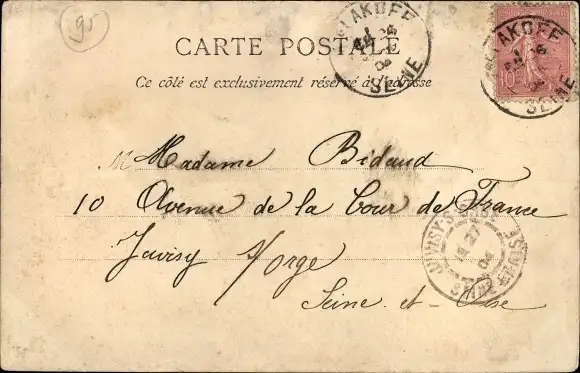 95
CARTE POSTALE
Ce côté est exclusivement réservé à l'adresse
MALAKOFF
SEINE
MALAKOFF
SEINE
10
M Madame Bidaud
10 Avenue de la Cour de France
Juvisy s/orge
Seine et Oise
JUVISY-S-ORGE
27
04
SEINE-ET-OISE